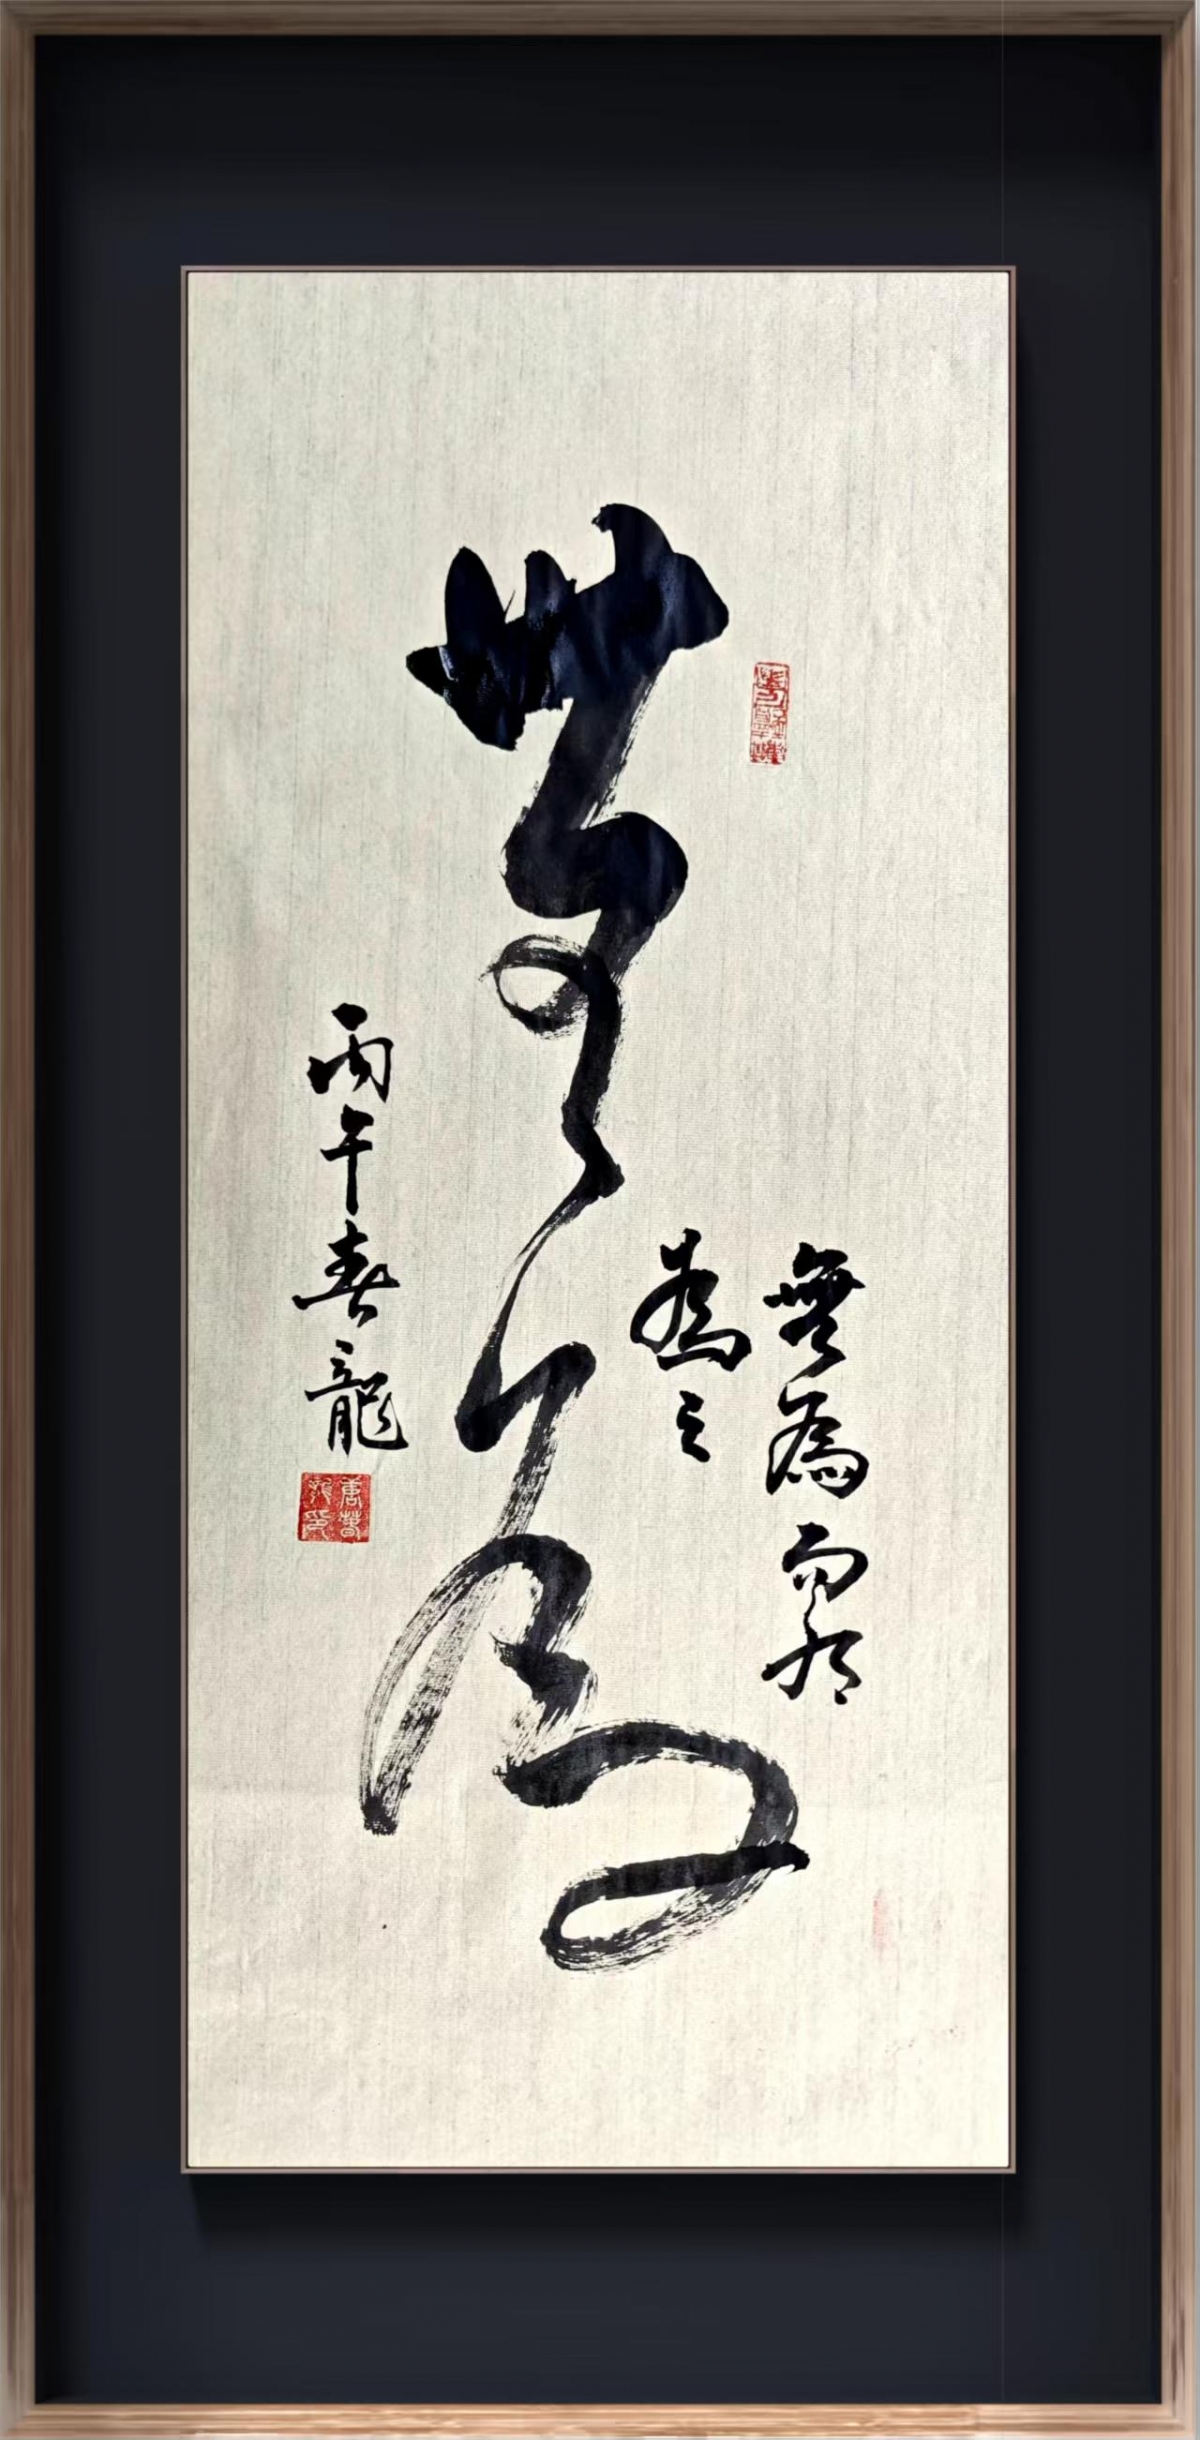 無為而有
為之
無為
丙午春龍